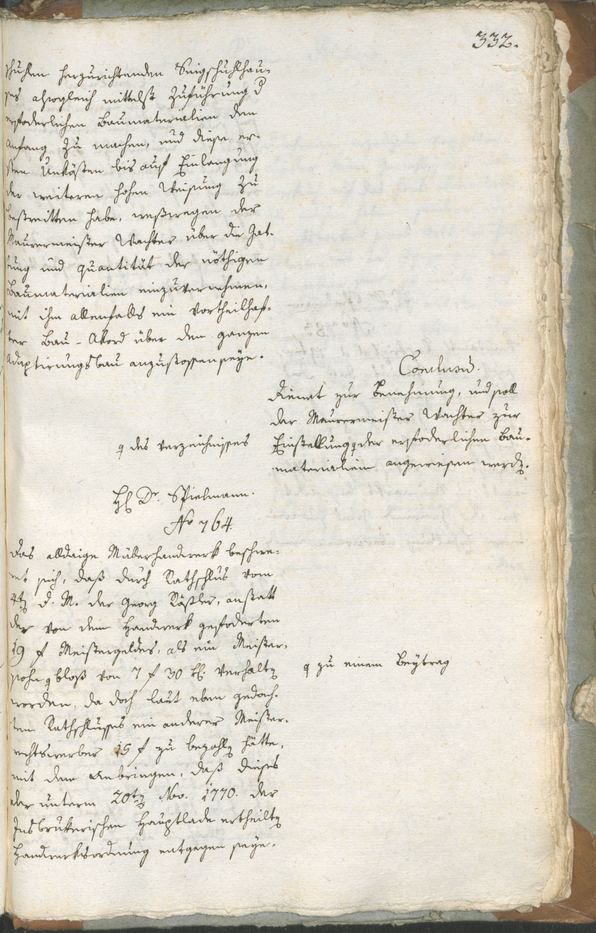 332.
schuhlen herzurichtenden Singschuhlhau-
ses alsogleich mittelst Zuführung d
erfoderlichen Baumaterialien den
Anfang zu machen, und diese er-
sten Unkösten bis auf Einlangung
der weiteren hohen Weisung zu
bestreitten habe, weßwegen der
Maurermeister Wachter über die Gat-
tung und quantität der nöthigen
Baumaterialien einzuvernehmen,
mit ihm allenfalls ein vortheilhaf-
ter Bau-Akord über den ganzen
Adaptirungsbau anzustossen seye.
Conclusum.
Dienet zur Benehmung, und soll
der Maurermeister Wachter zur
Einstellung der erfoderlichen Bau-
materialien angewiesen werden.
des Verzeichnisses
H. Dr. Spielmann.
No 764
Das alldaige Müllerhandwerk beschwe-
ret sich, daß durch Rathschluß vom
d. M. der Georg anstatt
der von dem Handwerk gefoderten
19 f Meistergeldes, als ein Meister-
sohn bloß von 7 f 30 kr verhalten
worden, da doch laut eben gedach-
ten Rathschlusses ein anderer Meister-
rechtswerber 15 f zu bezahlen hätte,
mit dem Anbringen, daß dieses
der unterm 20ten Nov. 1770. der
Insbrukerischen Hauptlade ertheilten
Handwerksordnung entgegen seye.
zu einem Beytrag